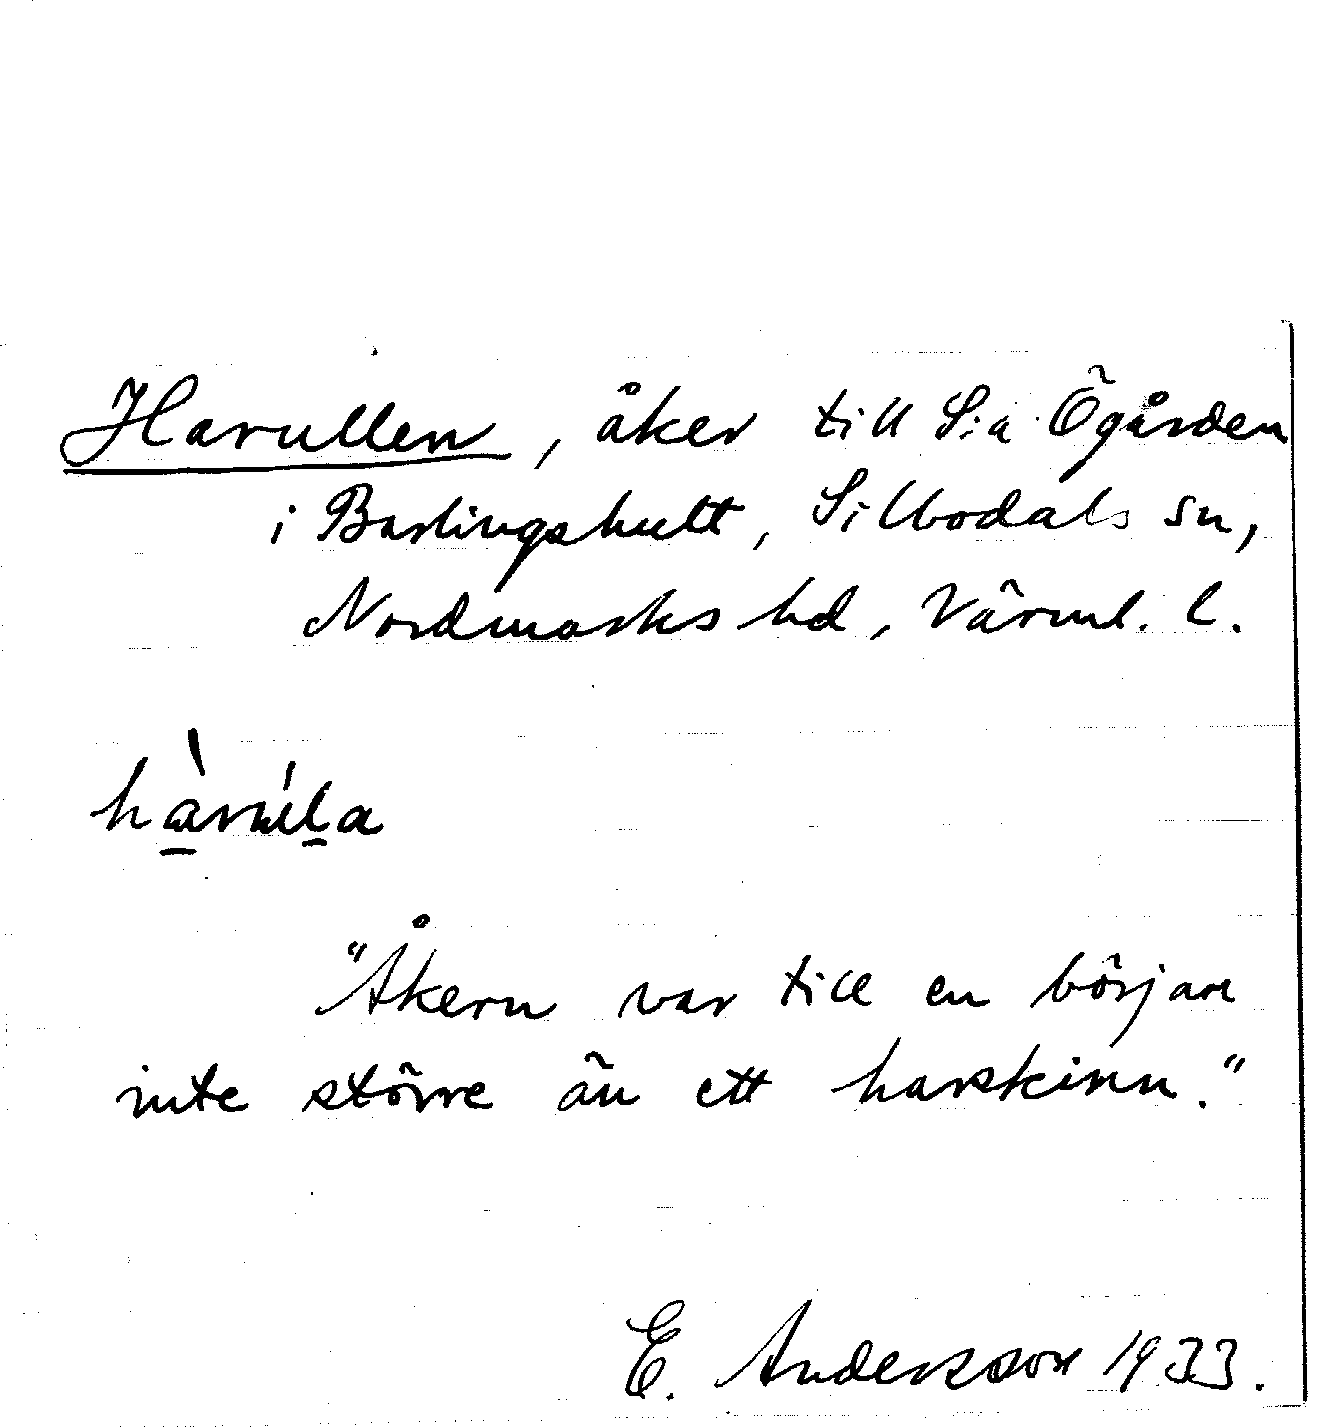 Harullen, åker till S:a Ögården
i Bärlingshult, Silbodals sn,
Nordmarks hd, Värml. l.
hàrúla
"Åkern var till en början
inte större än ett harskinn."
E. Andersson 1933.